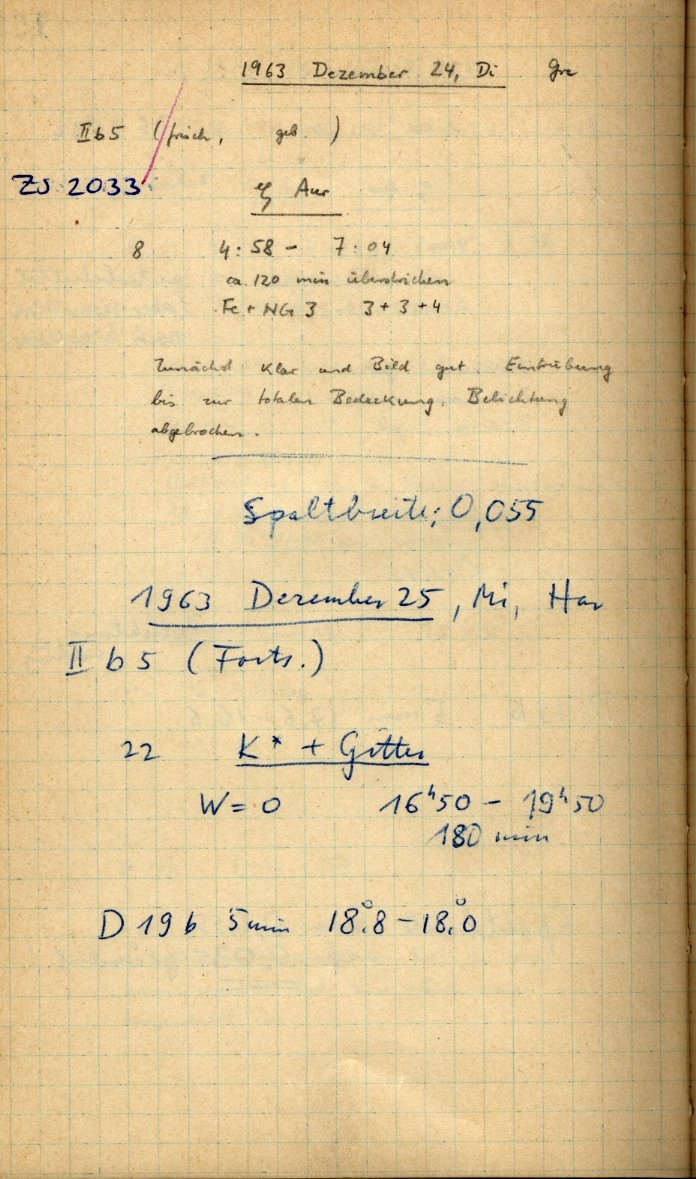 1963 Dezember 24, Di Gre
II b 5 (frisch, geb. )
ZS 2033
Aur
8 4:58 – 7:04
ca. 120 min überstrichen
Fe + NG 3 3 + 3 + 4
Zunächst klar und Bild gut. Eintrübung
bis zur totalen Bedeckung. Belichtung
abgebrochen.
Spaltbreite: 0,055
1963 Dezember 25, Mi, Har
II b 5 (Forts.)
22 K* + Gitter
W = 0 16ʰ50 – 19ʰ50
180 min
D 19 b 5 min 18°.8 – 18°.0